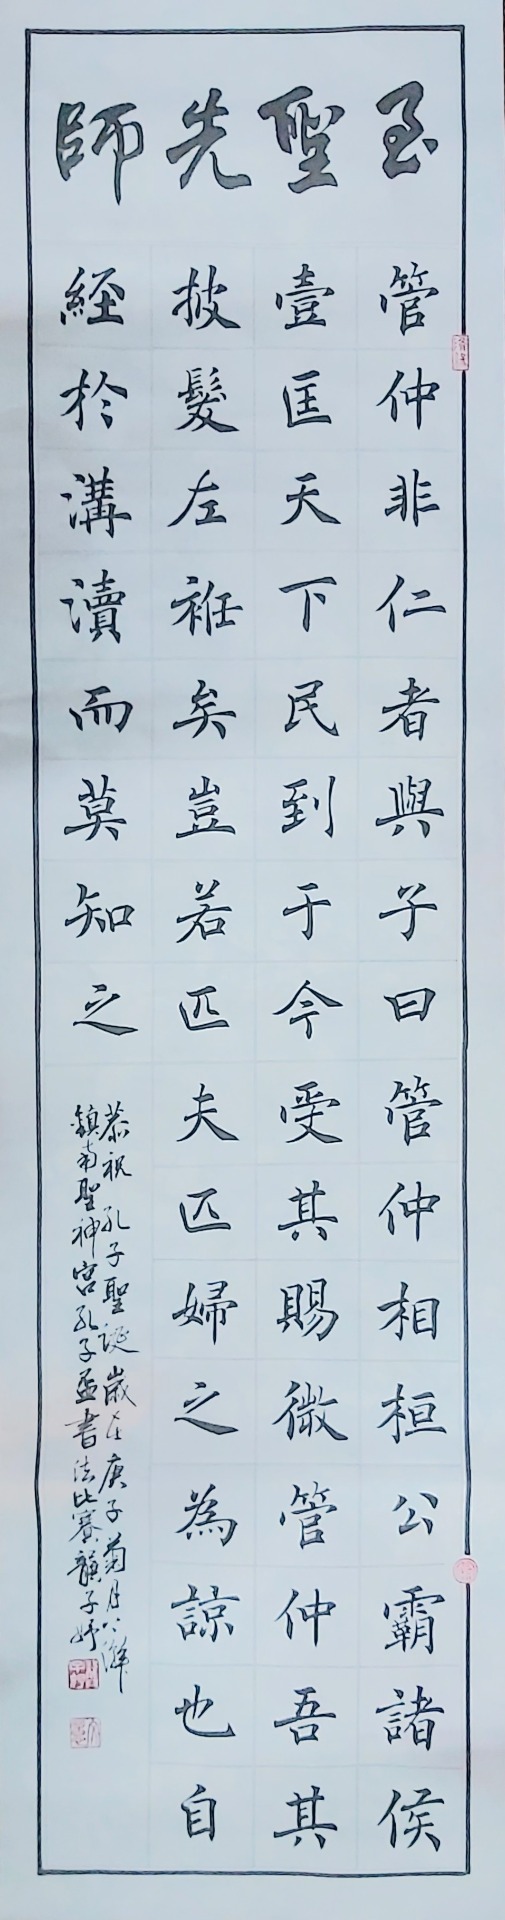 至聖先師
管仲非仁者與子曰管仲相桓公霸諸侯
壹匡天下民到于今受其賜微管仲吾其
披髮左袵矣豈若匹夫匹婦之為諒也自
經於溝瀆而莫知之
恭祝孔子聖誕歲在庚子菊月
鎮南聖神宮孔子盃書法比賽韻子妤